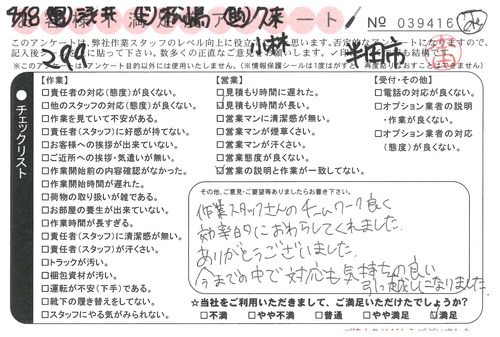 お客様満足アンケート
No 039416
299
小林
半田市
このアンケートは、弊社作業スタッフのレベル向上に役立
チェックリスト
【作業】
□責任者の対応(態度)が良くない。
□他のスタッフの対応(態度)が良くない。
□作業を見ていて不安がある。
□責任者(スタッフ)に好感が持てない。
□お客様への挨拶が出来ていない。
□ご近所への挨拶・気遣いが無い。
□作業開始前の内容確認がなかった。
□作業開始時間が遅れた。
□荷物の取り扱いが雑である。
□お部屋の養生が出来ていない。
□作業時間が長すぎる。
□責任者(スタッフ)に清潔感が無い。
□責任者(スタッフ)が汗くさい。
□トラックが汚い。
□梱包資材が汚い。
□運転が不安(下手)である。
□靴下の履き替えをしてない。
□スタッフにやる気がみられない。
【営業】
□見積もり時間に遅れた。
□見積もり時間が長い。
□営業マンに清潔感が無い。
□営業マンが煙草くさい。
□営業マンが汗くさい。
□営業態度が良くない。
□営業の説明と作業が一致してない。
【受付・その他】
□電話の対応が良くない。
□オプション業者の説明
・作業が良くない。
□オプション業者の対応
(態度)が良くない。
その他、ご意見・ご要望等ありましたらお書き下さい。
作業スタッフさんのチームワーク良く
効率的におわらしてくれました。
ありがとうございました。
今までの中で対応も気持ちの良い
引っ越しになりました。
☆当社をご利用いただきまして、ご満足いただけたでしょうか?
□不満 □やや不満 □普通 □やや満足 ☑満足